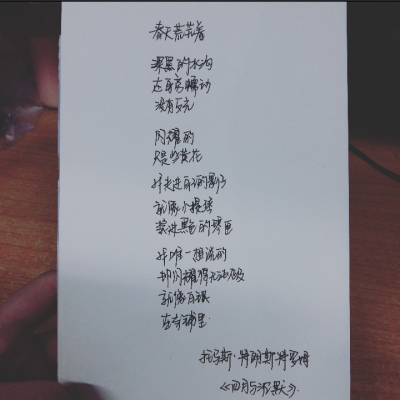 春天荒芜着
深黑的水沟
在身旁蠕动
没有反光
闪耀的
只是些黄花
我走进自己的影子
就像小提琴
装进黑色的琴匣
我唯一想说的
却闪耀得无法触及
就像白银
在当铺里.
托马斯·特朗斯特罗姆
《四月与沉默》.